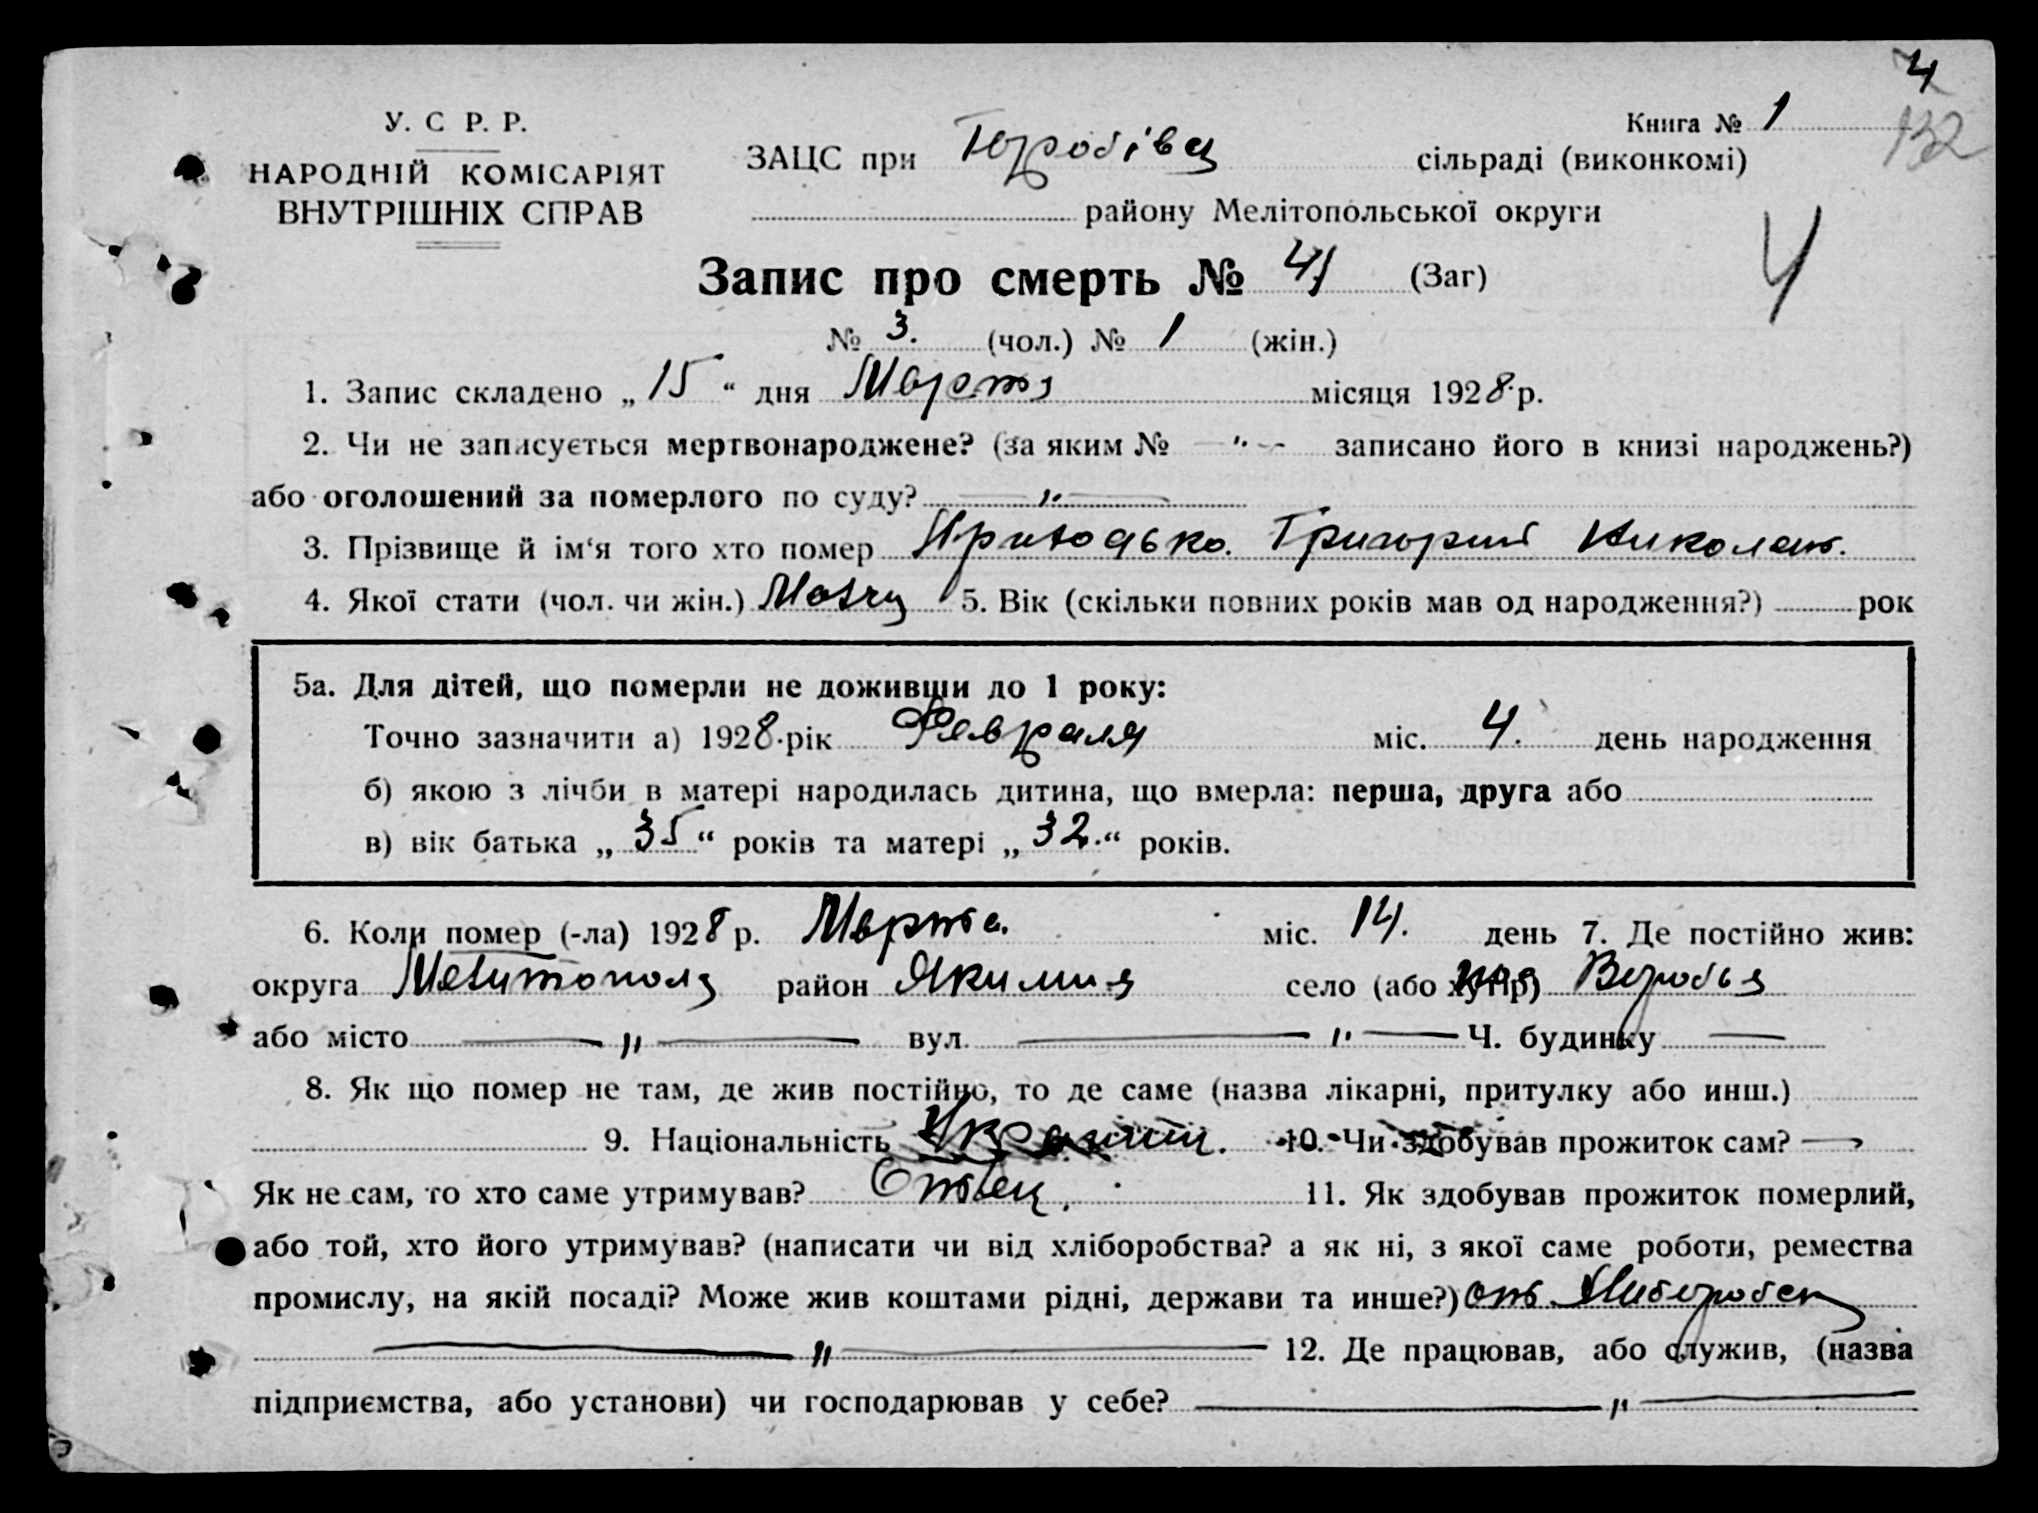 4
У. С Р. Р.
Книга № 1
132
НАРОДНІЙ КОМІСАРІЯТ
ЗАЦС при сільраді (виконкомі)
ВНУТРІШНІХ СПРАВ
району Мелітопольської округи
4
Запис про смерть № 4 (Заг)
№ 3. (чол.) № 1 (жін.)
1. Запис складено „ 15 “ дня Марта місяця 1928 р.
2. Чи не записується мертвонароджене? (за яким № — " — записано його в книзі народжень?)
або оголошений за померлого по суду? — " —
3. Прізвище й ім‘я того хто помер Приходько Григорий Николает.
4. Якої стати (чол. чи жін.) 5. Вік (скільки повних років мав од народження?) рок
5а. Для дітей, що померли не доживши до 1 року:
Точно зазначити а) 1928 рік Февраля міс. 4. день народження
б) якою з лічби в матері народилась дитина, що вмерла: перша, друга або
в) вік батька „ 35 “ років та матері „ 32. “ років.
6. Коли помер (-ла) 1928 р. Марта міс. 14. день 7. Де постійно жив:
округа Мелитополь район Якимия село (або хутір)
або місто — " — вул. — " — Ч. будинку —
8. Як що помер не там, де жив постійно, то де саме (назва лікарні, притулку або инш.)
9. Національність 10. Чи здобував прожиток сам? —
Як не сам, то хто саме утримував? Отец. 11. Як здобував прожиток померлий,
або той, хто його утримував? (написати чи від хліборобства? а як ні, з якої саме роботи, ремества
промислу, на якій посаді? Може жив коштами рідні, держави та инше?)
— " — 12. Де працював, або служив, (назва
підприємства, або установи) чи господарював у себе? — " —